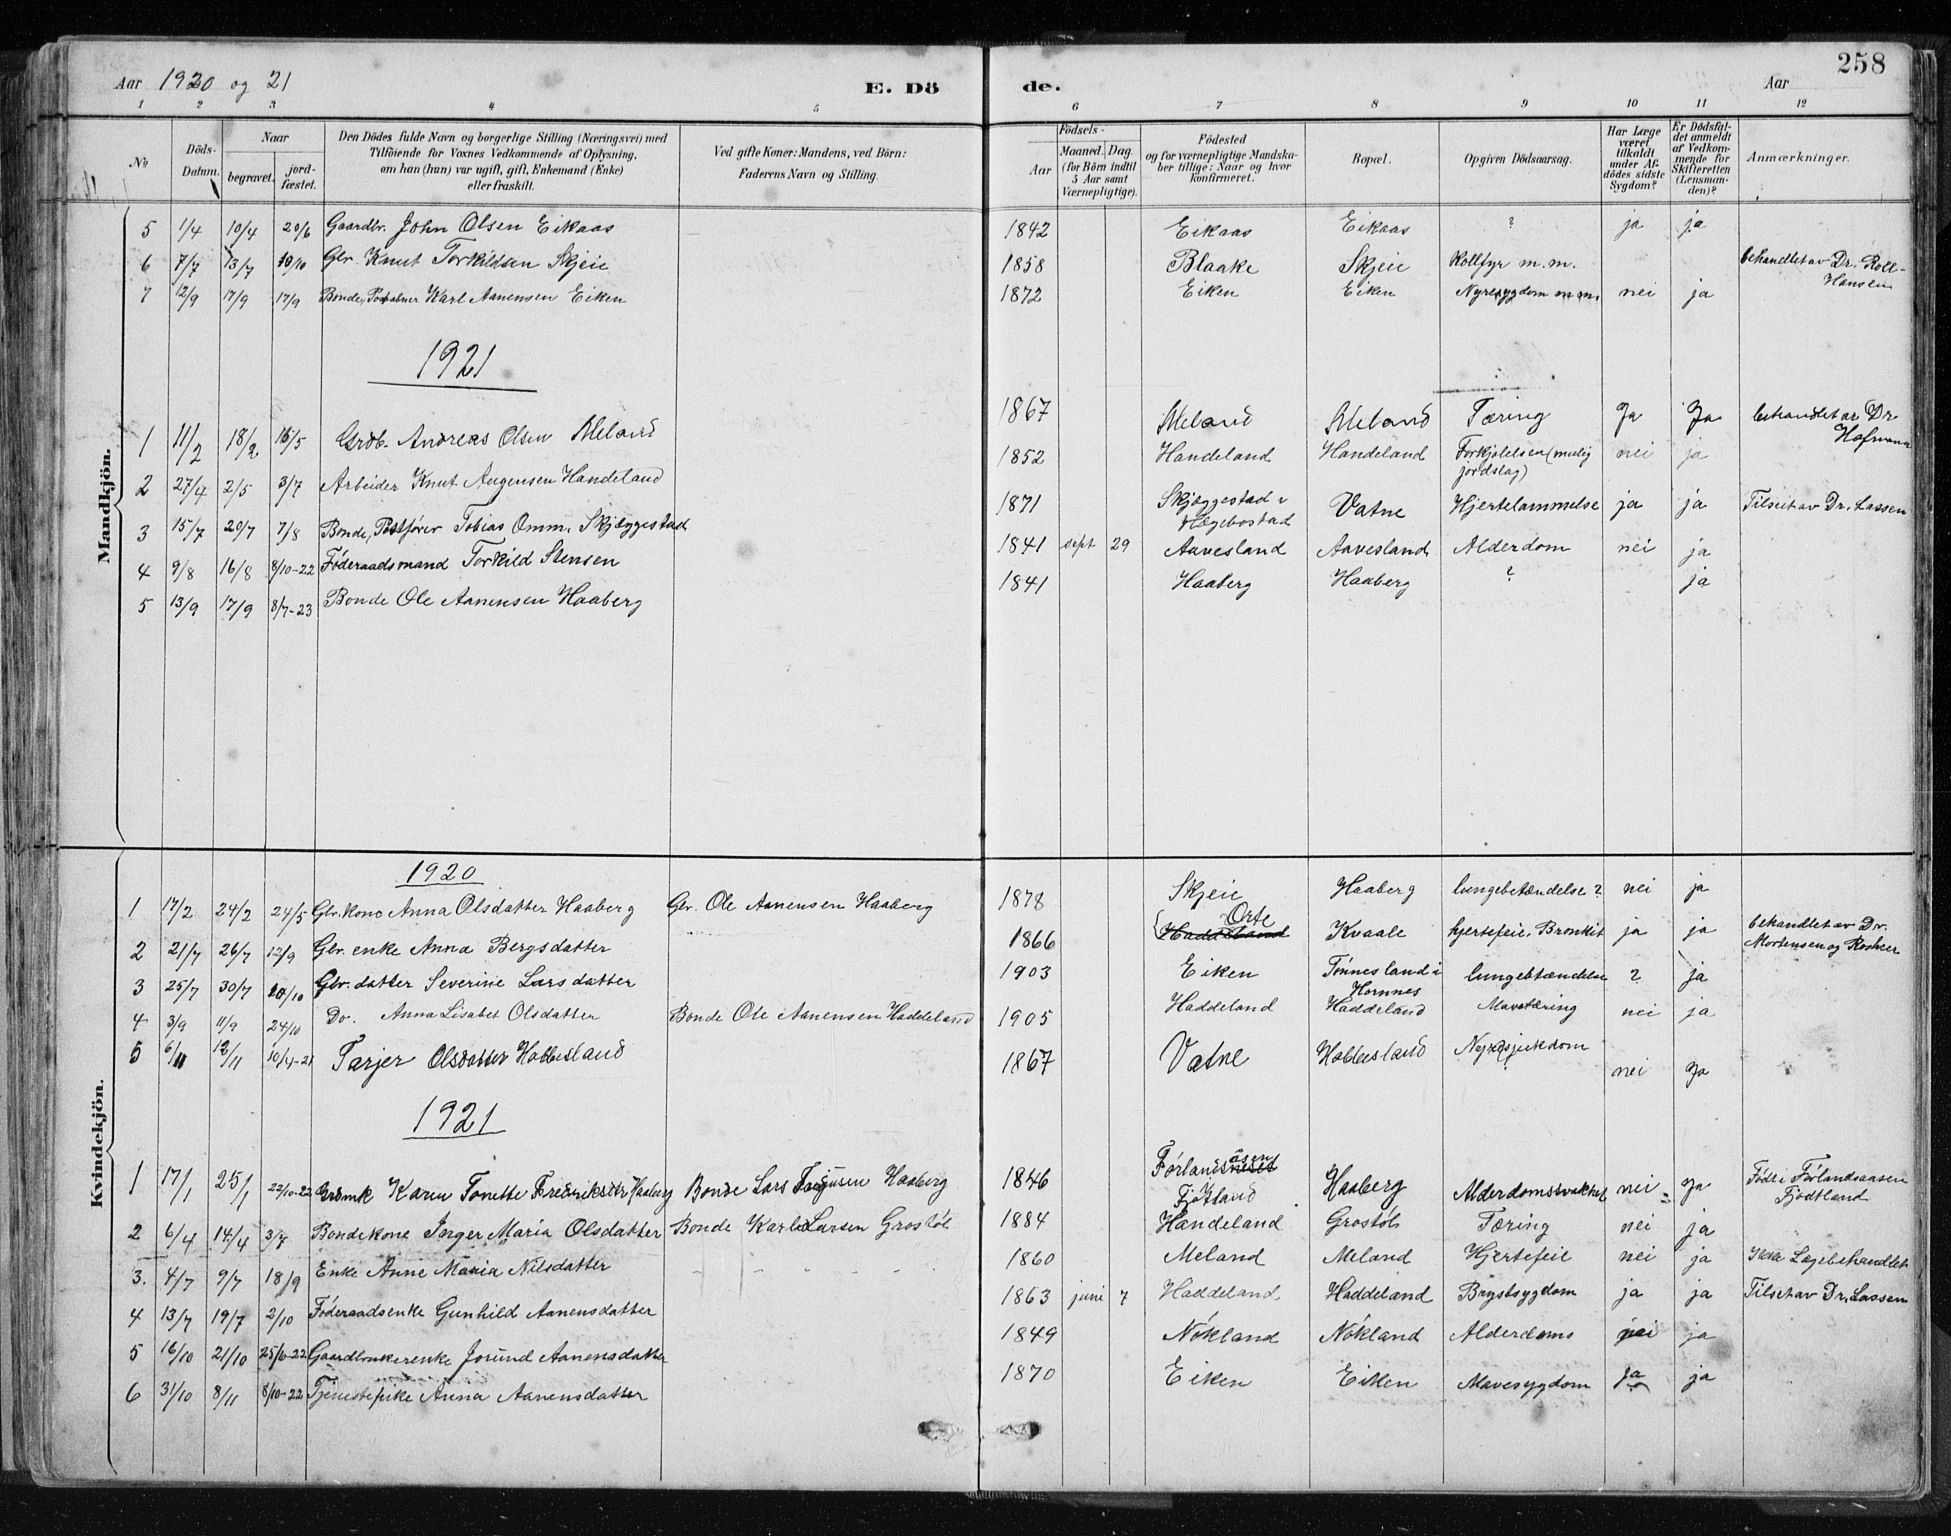 258
Aar 1920 og 21
E. Dö
de.
Aar
1 2 3 4 5 6 7 8 9 10 11 12
No
Döds-
Datum.
Naar
begravet.
jord-
fæstet.
Den Dödes fulde Navn og borgerlige Stilling (Næringsvei) med
Tilföiende for Voxnes Vedkommende af Oplysning,
om han (hun) var ugift, gift, Enkemand (Enke)
eller fraskilt.
Ved gifte Koner: Mandens, ved Börn:
Faderens Navn og Stilling.
Födsels-
Aar
Maaned. Dag.
(for Börn indtil
5 Aar samt
Værnepligtige).
Födested
og for værnepligtige Mandska-
ber tillige: Naar og hvor
konfirmeret.
Bopæl.
Opgiven Dödsaarsag.
Har Læge
været
tilkaldt
under Af-
dödes sidste
Sygdom?
Er Dödsfal-
det anmeldt
af Vedkom-
mende for
Skifteretten
(Lensman-
den)?
Anmærkninger.
Mandkjön.
5 1/4 10/4 20/6 Gaardbr. John Olsen Eikaas 1842 Eikaas Eikaas ? ja ja
6 7/7 13/7 10/10 Gbr. Knut Torkildsen Skjeie 1858 Blaake Skjeie Koldfyr m.m. behandlet av Dr. Roll-
Hansen
7 12/9 17/9 17/9 Bonde, Karl Aanensen Eiken 1872 Eiken Eiken Nyresygdom m.m. nei ja
1921
1 11/2 18/2 16/5 Grdb. Andreas Olsen Meland 1867 Meland Meland Tæring Ja Ja behandlet av Dr
Hofmann
2 27/4 2/5 3/7 Arbeider Knut Augensen Handeland 1852 Handeland Handeland Forkjölelsen (mulig
jordslag) nei ja
3 15/7 20/7 7/8 Bonde, Postfører Tobias Omm. Skjæggestad 1871 Skjæggestad i
Hægebostad Vatne Hjertelammelse ja ja Tilset av Dr. Lassen
4 9/8 16/8 8/10-22 Føderaadsmand Torkild Stensen 1841 sept 29 Aavesland Aavesland Alderdom nei ja
5 13/9 17/9 8/7-23 Bonde Ole Aanensen Haaberg 1841 Haaberg Haaberg ? ja
Kvindekjön.
1920
1 17/2 24/2 24/5 Gbr. kone Anna Olsdatter Haaberg Gbr. Ole Aanensen Haaberg 1878 Skjeie Haaberg lungebetændelse? nei ja
2 21/7 26/7 12/9 Gbr. enke Anna Bergsdatter 1866 Haddeland Orte Kvaale hjertefeil, Bronkit ja ja behandlet av Dr.
Mortensen og
3 25/7 30/7 10/10 Gbr. datter Severine Larsdatter 1903 Eiken Tönnesland i
Hornnes lungebtændelse ? ja
4 3/9 11/9 24/10 Do. Anna Lisabet Olsdatter Bonde Ole Aanensen Haddeland 1905 Haddeland Haddeland Mavetæring nei ja
5 6/11 12/11 10/4-21 Tarjer Olsdatter Hobbesland 1867 Vatne Hobbesland Nyresjukdom nei Ja
1921
1 17/1 25/1 22/10-22 Grdmk Karen Tonette Fredriksdtr Haaberg Bonde Lars Haaberg 1846 Förlandsåsen
Fjotland Haaberg Alderdomsvakhet nei Ja Födt i Förlandsaasen
Fjodtland
2 6/4 14/4 3/7 Bondekone Inger Maria Olsdatter Bonde Karl Larsen Grostöl 1884 Handeland Grostöl Tæring nei ja
3. 4/7 9/7 18/9 Enke Anne Maria Nilsdatter - - - - 1860 Meland Meland Hjertefeil nei ja Ikke Lægebehandlet
4 13/7 19/7 2/10 Föderaadsenke Gunhild Aanensdatter 1863 juni 7 Haddeland Haddeland Brystsygdom ja ja Tilset av Dr. Lassen
5 16/10 21/10 25/6-22 Gaardbrukerenke Jorund Aanensdatter 1849 Nökland Nökland Alderdoms nei ja
6 31/10 8/11 8/10-22 Tjenestepike Anna Aanensdatter 1870 Eiken Eiken Mavesygdom ja ja